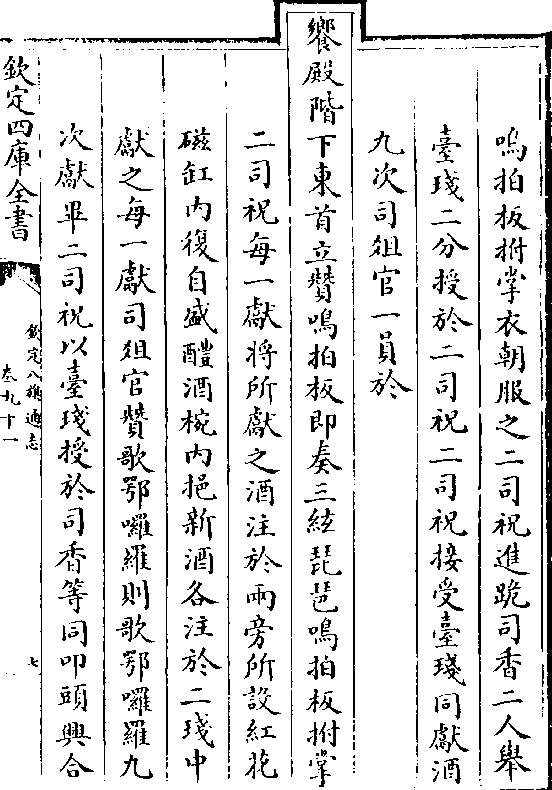 鳴拍板拊掌衣朝服之二司祝進跪司香二人舉
臺琖二分授於二司祝二司祝接受臺琖同獻酒
九次司俎官一員於
饗殿階下東首立贊鳴拍板即奏三絃琵琶鳴拍板拊掌
二司祝每一獻將所獻之酒注於兩旁所設紅花
磁缸內復自盛醴酒椀內挹新酒各注於二琖中
獻之每一獻司俎官贊歌鄂囉羅則歌鄂囉羅九
次獻畢二司祝以臺琖授於司香等同叩頭興合
欽定四庫全書
欽定八旗通志
卷九十一
七